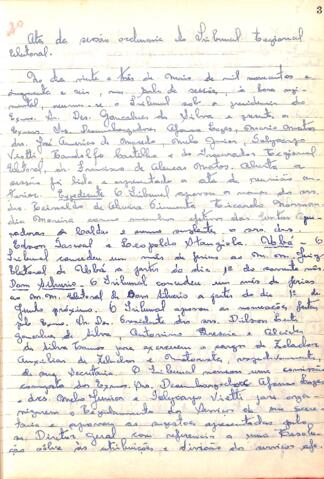 3
20
Ata da sessão ordinaria do Tribunal Regional
Eleitoral.
No dia vinte e três de Maio de mil novecentos e
cinquenta e seis, na sala de sessões, à hora regi-
mental, reuniu-se o Tribunal sob a presidencia do
Exmo. Sr. Des. Gonçalves da Silva e presente os
Exmos. Srs. Desembargadores Afonso Lages, Mario Matos
drs. José Americo de Macedo, Melo Junior, Idalyrgo
Vietti, e do Procurador Regional
Eleitoral, dr. Francisco de A
sessão foi lida e aprovada a ata da reunião an-
terior. Expediente O Tribunal aprovou o nome dos srs.
drs. de Oliveira Pimenta, Ricardo
dia Moreira como membros efetivos das Juntas Apu-
radoras de e como suplente, o sr. dr.
Edson Pascoal e Leopoldo . Ubá - O
Tribunal concedeu um mês de ferias ao M. M. Juiz
Eleitoral de Ubá a partir do dia 1º do corrente mês
Dom Silverio - O Tribunal concedeu um mês de ferias
ao M. M. Eleitoral de Dom Silverio a partir do dia 1º de
Junho próximo. O Tribunal aprovou as nomeações feitas
pelo Exmo. Sr. Dr. Presidente dos srs. Dilson
de Silva e Antonino Pereira e Alcides
da Silva para exercerem o cargo de Zelador
Auxiliar de e Motorista, respectivamente,
de sua Secretaria. O Tribunal nomeou uma comissão
composta do Exmo. Sr. Desembargador Afonso Lages
e drs. Melo Junior e Idalyrgo Vietti para orga-
nizarem o Regulamento do Serviço de sua Secre-
taria e aprovou as sugestões apresentadas pelo
sr. Diretor Geral com referencia a uma Resolu-
ção sôbre as atribuições e divisão do serviço afe-